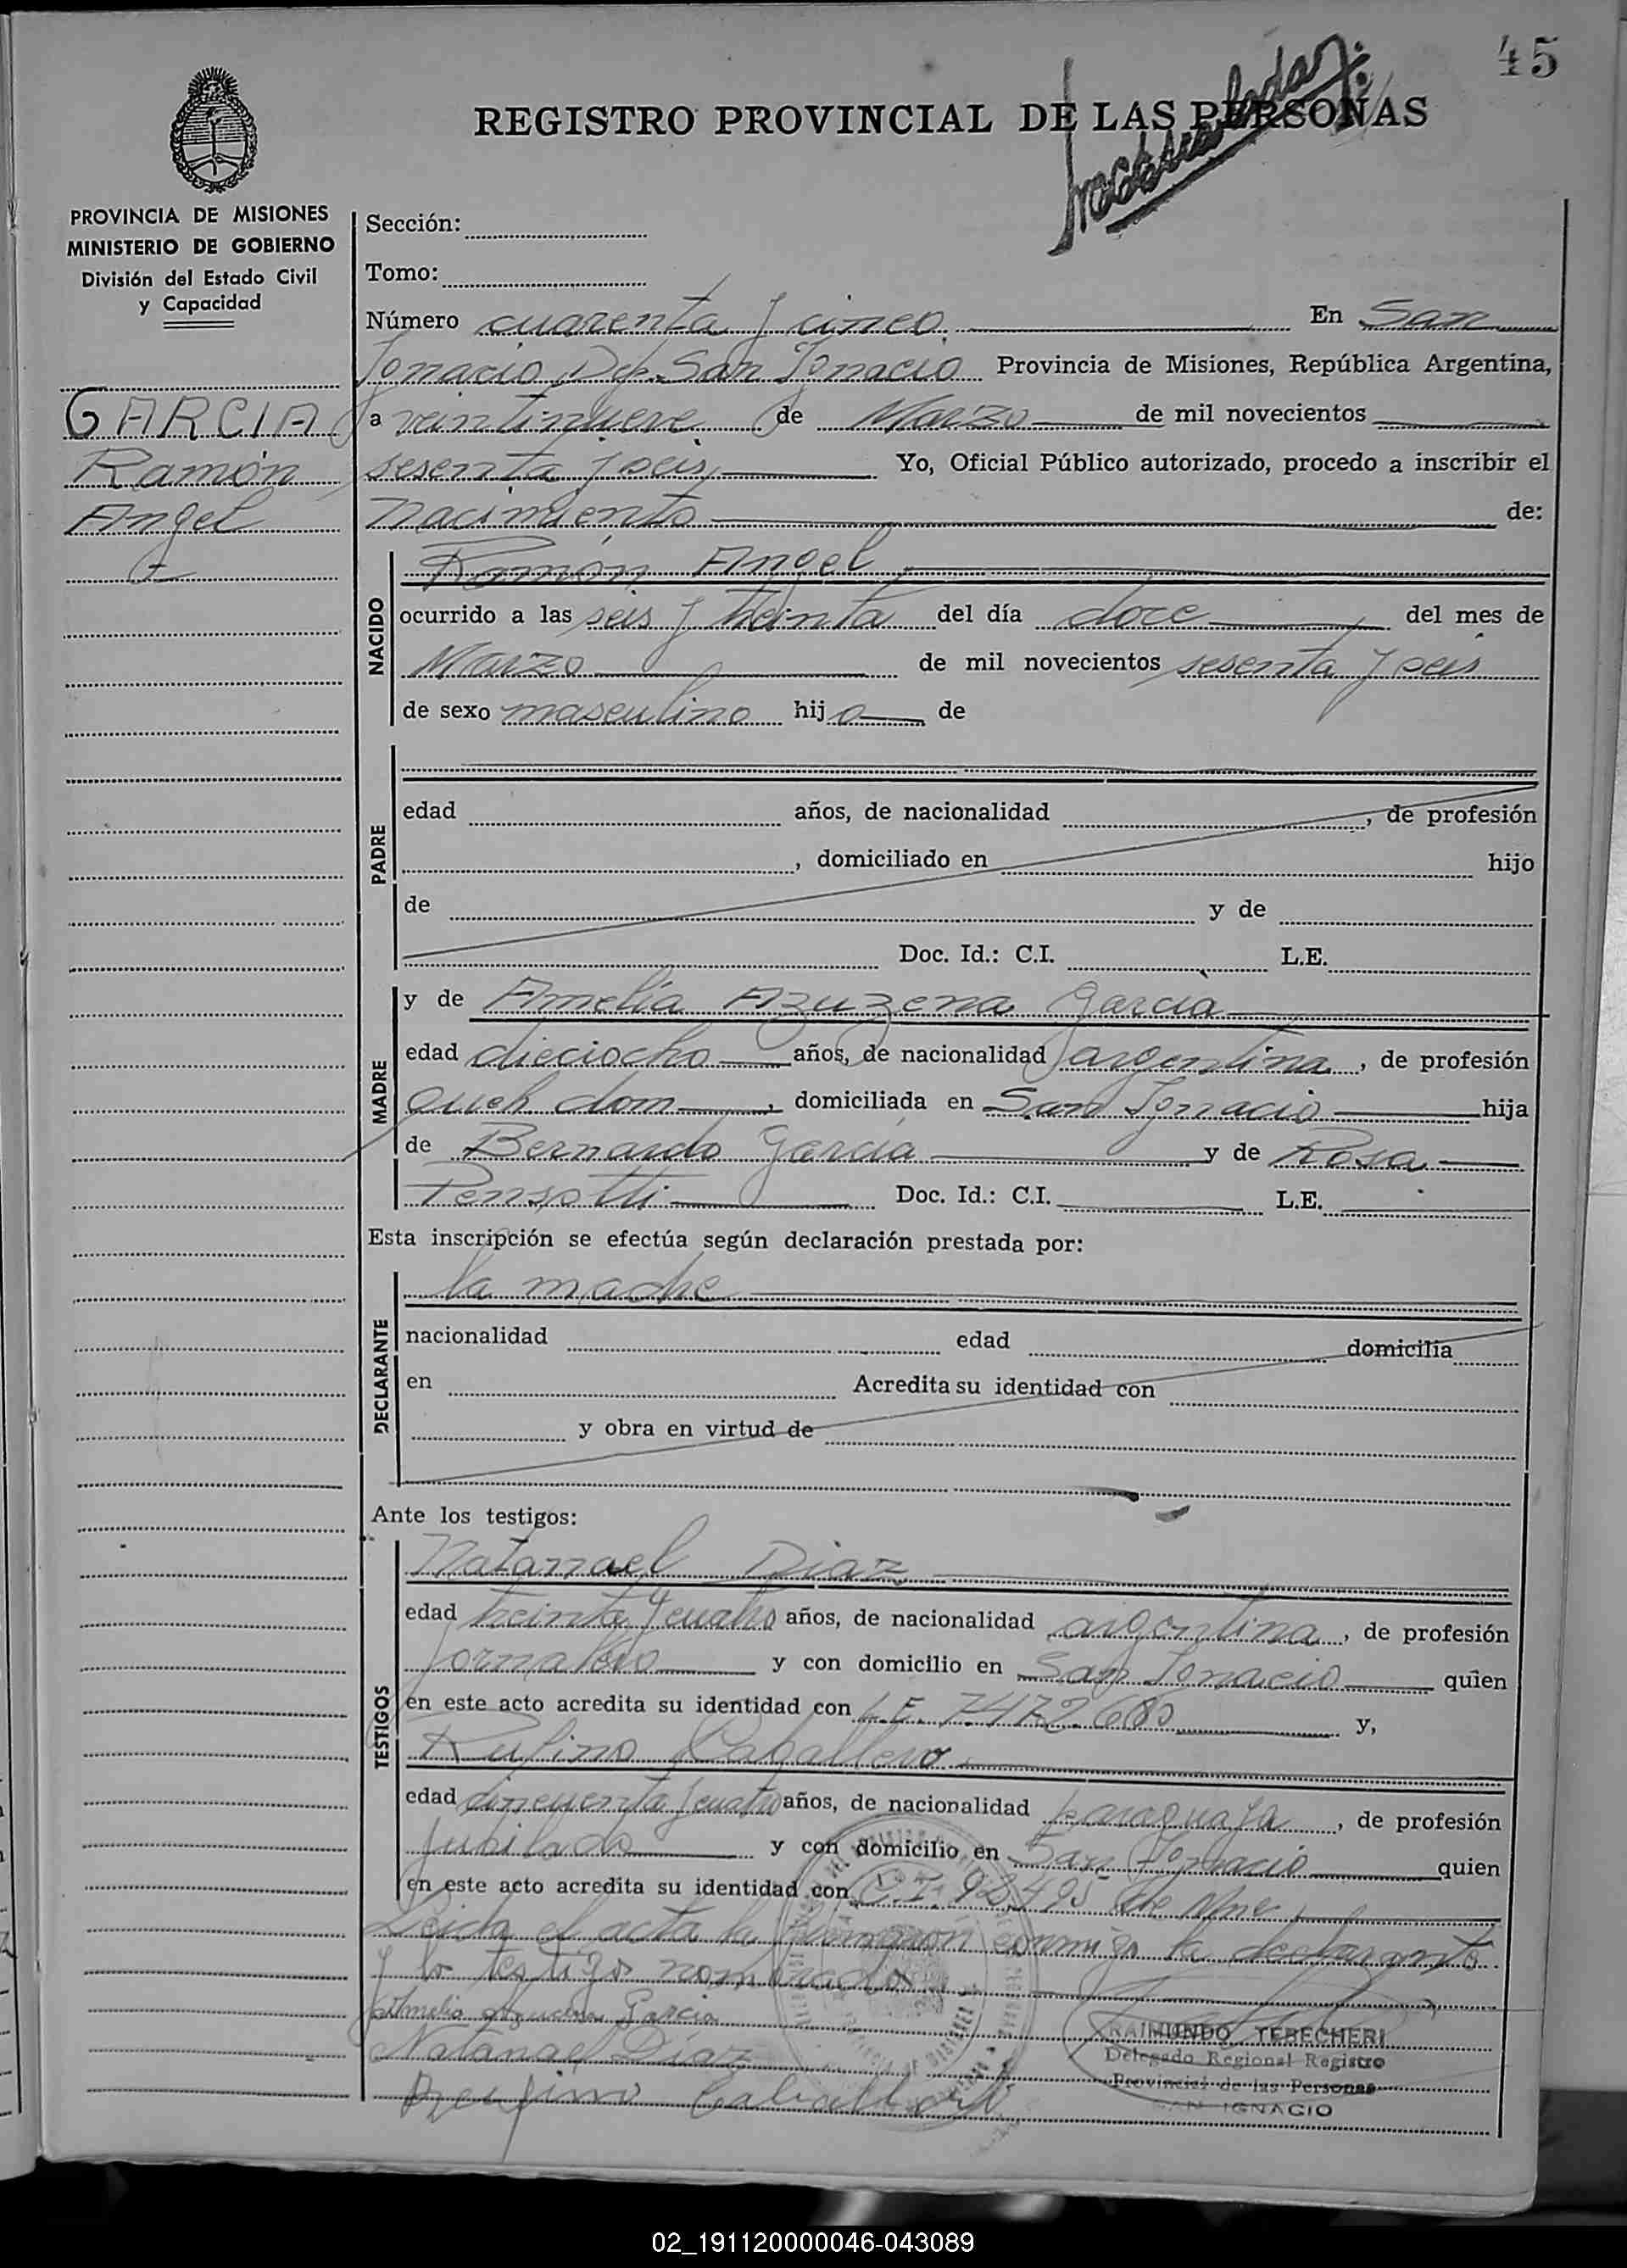 45
REGISTRO PROVINCIAL DE LAS PERSONAS
PROVINCIA DE MISIONES
MINISTERIO DE GOBIERNO
División del Estado Civil
y Capacidad
GARCIA
Ramón
Angel
Sección:
Tomo:
Número cuarenta y cinco. En San
Ignacio, Dep. San Ignacio Provincia de Misiones, República Argentina,
a veintinueve de Marzo de mil novecientos
sesenta y seis, Yo, Oficial Público autorizado, procedo a inscribir el
nacimiento de:
NACIDO
Ramón Angel
ocurrido a las seis y treinta del día doce del mes de
Marzo de mil novecientos sesenta y seis
de sexo masculino hijo de
PADRE
edad años, de nacionalidad , de profesión
, domiciliado en hijo
de y de
Doc. Id.: C.I. L.E.
MADRE
y de Amelia Azuzena Garcia
edad dieciocho años, de nacionalidad argentina, de profesión
queh dom, domiciliada en San Ignacio hija
de Bernardo Garcia y de Rosa
Pensotti Doc. Id.: C.I. L.E.
Esta inscripción se efectúa según declaración prestada por:
DECLARANTE
la madre
nacionalidad edad domicilia
en Acredita su identidad con
y obra en virtud de
Ante los testigos:
TESTIGOS
Natanael Diaz
edad treinta y cuatro años, de nacionalidad argentina, de profesión
jornalero y con domicilio en San Ignacio quien
en este acto acredita su identidad con L.E. 7.472.680 y,
Rufino Caballero
edad cincuenta y cuatro años, de nacionalidad paraguaya, de profesión
jubilado y con domicilio en San Ignacio quien
en este acto acredita su identidad con C.I. 92.495 de Mnes
Leida el acta la firmaron conmigo la declarante
y los testigos nombrados
Amelia Azucena Garcia
Natanael Diaz
RAIMUNDO TEBECHERI
Delegado Regional Registro
Provincial de las Personas
SAN IGNACIO
02_191120000046-043089